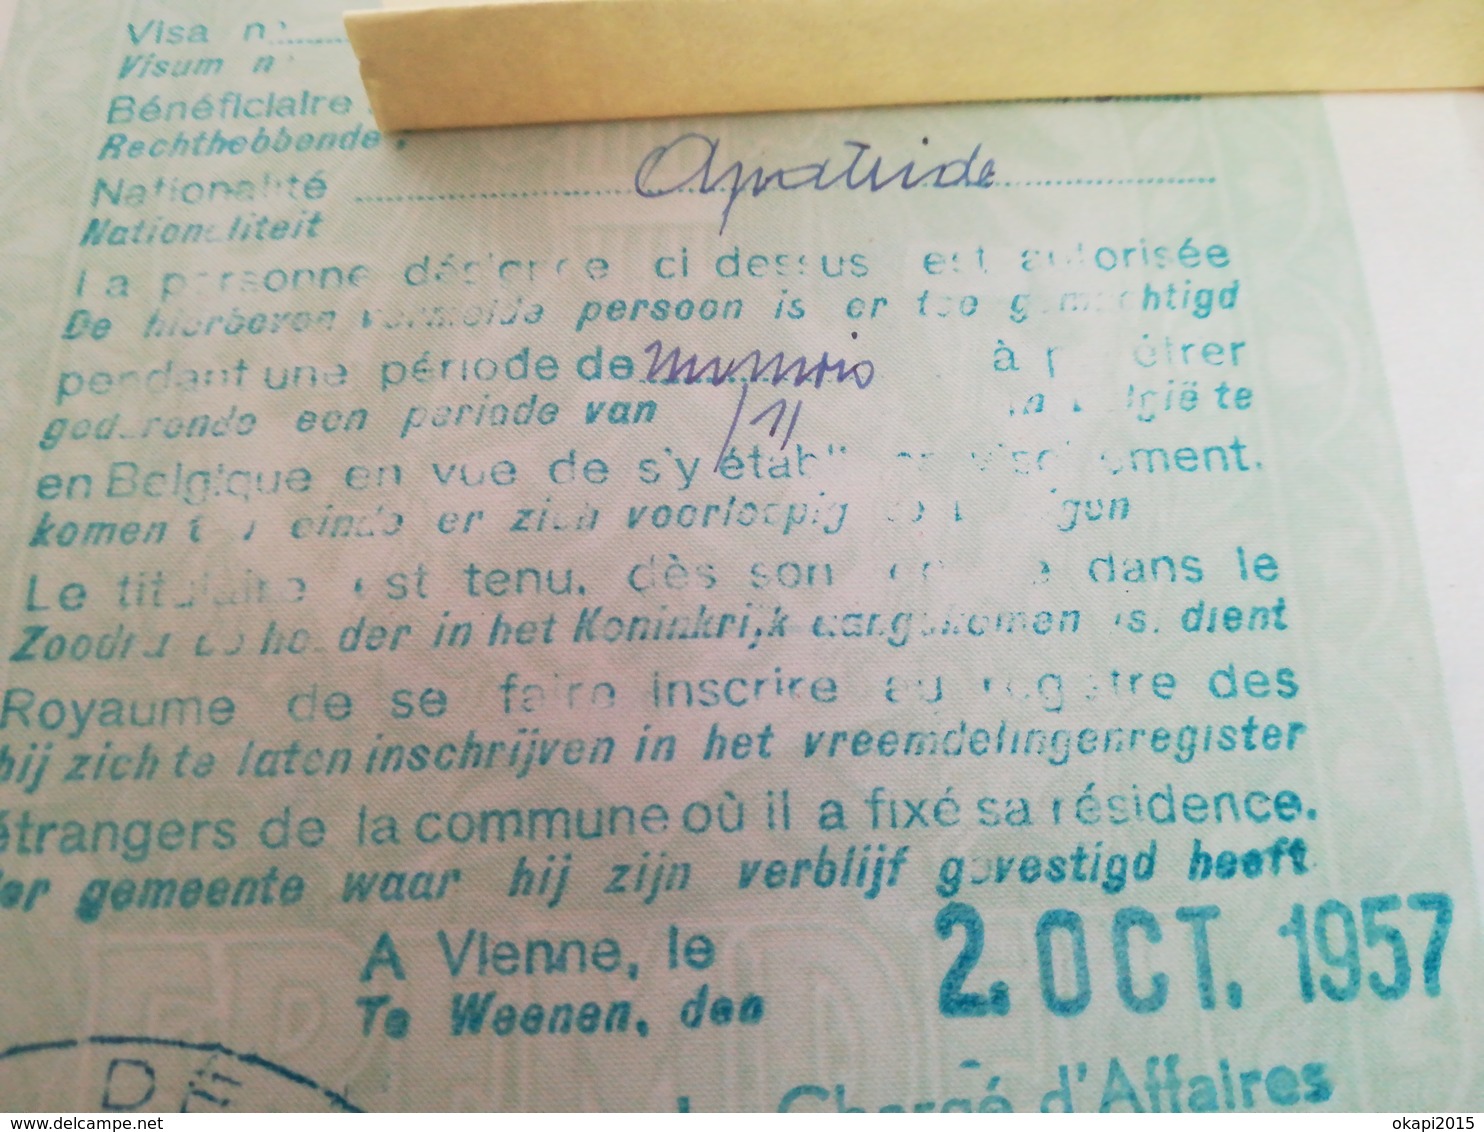 Visa n°
Visum n°
Bénéficiaire
Rechthebbende
Nationalité Apatride
Nationaliteit
La personne désignée ci dessus est autorisée
De hierboven vermelde persoon is er toe gemachtigd
pendant une période de un mois à pénétrer
gedurende een periode van /1/ in België te
en Belgique en vue de s'y établir provisoirement.
komen ten einde er zich voorloopig te vestigen
Le titulaire est tenu, dès son dans le
Zoodra de houder in het Koninkrijk aangekomen is, dient
Royaume de se faire inscrire au registre des
hij zich te laten inschrijven in het vreemdelingenregister
étrangers de la commune où il a fixé sa résidence.
der gemeente waar hij zijn verblijf gevestigd heeft.
A Vienne, le
Te Weenen, den
2. OCT. 1957
Chargé d'Affaires
D
okapi2015